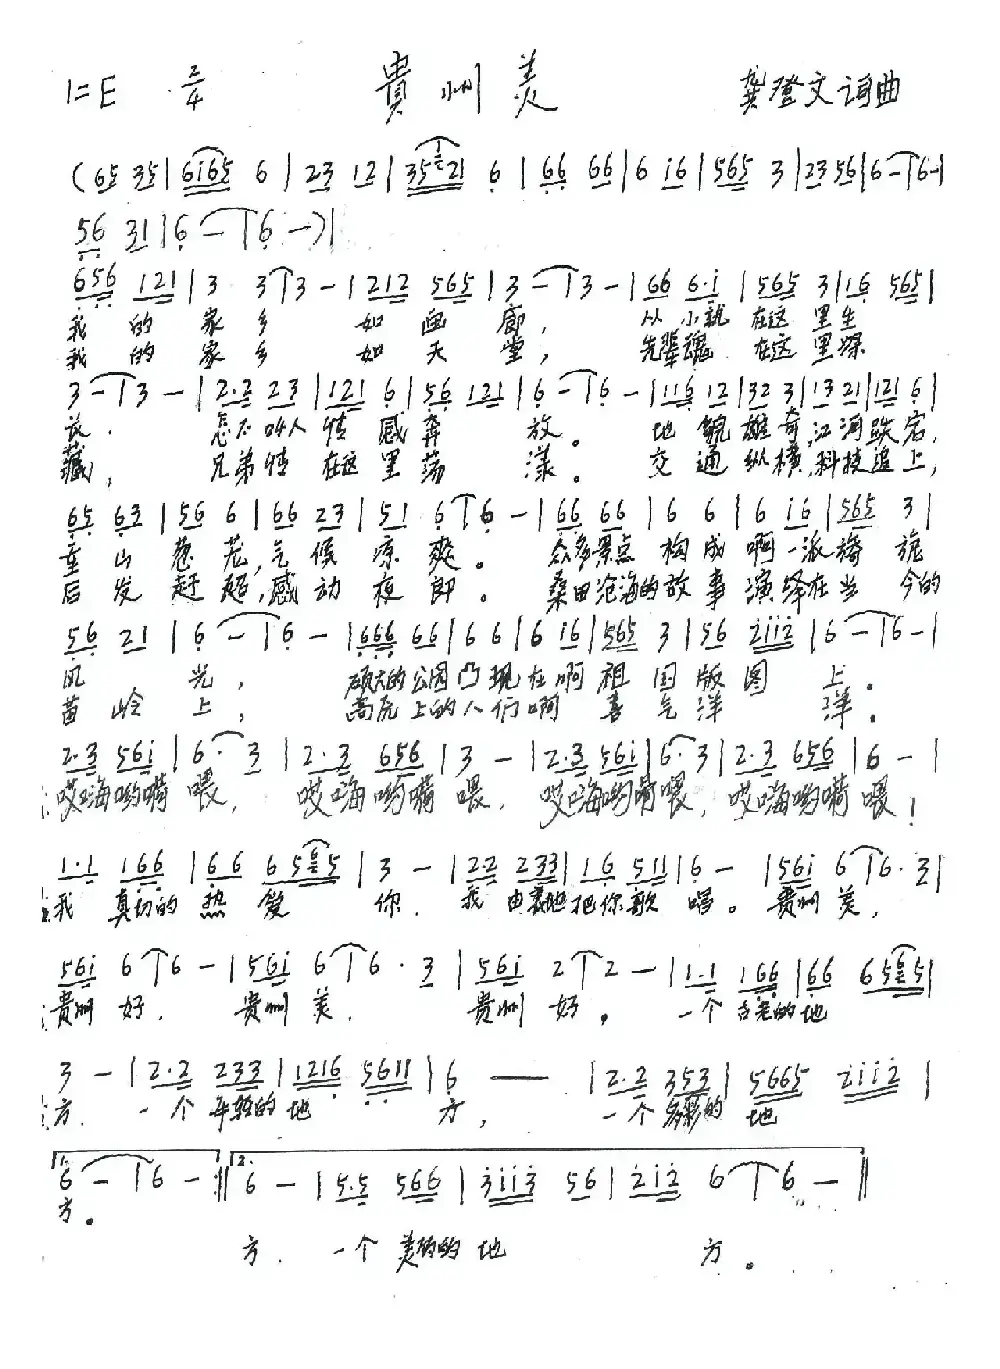 1=E 2/4 貴州美 龚登文词曲
(65 35|6i65 6|23 12|35 21 6|66 66|6 i6|565 3|23 56|6-|6-|
56 31|6-|6-)|
656 121|3 3|3-|212 565|3-|3-|66 6·i|565 3|16 565|
我的家乡如画廊,从小就在这里生
我的家乡如天堂,先辈魂在这里深
3-|3-|2·2 23|121 6|56 121|6-|6-|116 12|32 3|13 21|121 6|
长.怎不叫人情感奔放。地貌雄奇,江河跌宕,
藏,兄弟情在这里荡漾。交通纵横,科技追上,
65 63|56 6|66 23|51 6|6-|66 66|6 6|6 i6|565 3|
重山葱茏,气候凉爽。众多景点构成啊一派旖旎
后发赶超,感动夜郎。桑田沧海的故事演绎在当今的
56 21|6-|6-|666 66|6 6|6 i6|565 3|56 2ii2|6-|6-|
风光,硕大的公园凸现在啊祖国版图上。
苗岭上,高原上的人们啊喜气洋洋。
2·3 56i|6·3|2·3 656|3-|2·3 56i|6·3|2·3 656|6-|
哎嗨哟嗬喂,哎嗨哟嗬喂,哎嗨哟嗬喂,哎嗨哟嗬喂!
1·1 166|66 6565|3-|22 233|16 511|6-|56i 6|6·3|
我真切的热爱你.我由衷地把你歌唱。贵州美,
56i 6|6-|56i 6|6·3|56i 2|2-|1·1 166|66 6565|
贵州好.贵州美.贵州好。一个古老的地
3-|2·2 233|1216 5611|6—|2·2 353|5665 2ii2|
方.一个年轻的地方,一个多彩的地
1. 6-|6-:|2. 6-|5·5 566|3ii3 56|2i2 6|6-||
方。
方.一个美丽的地方。